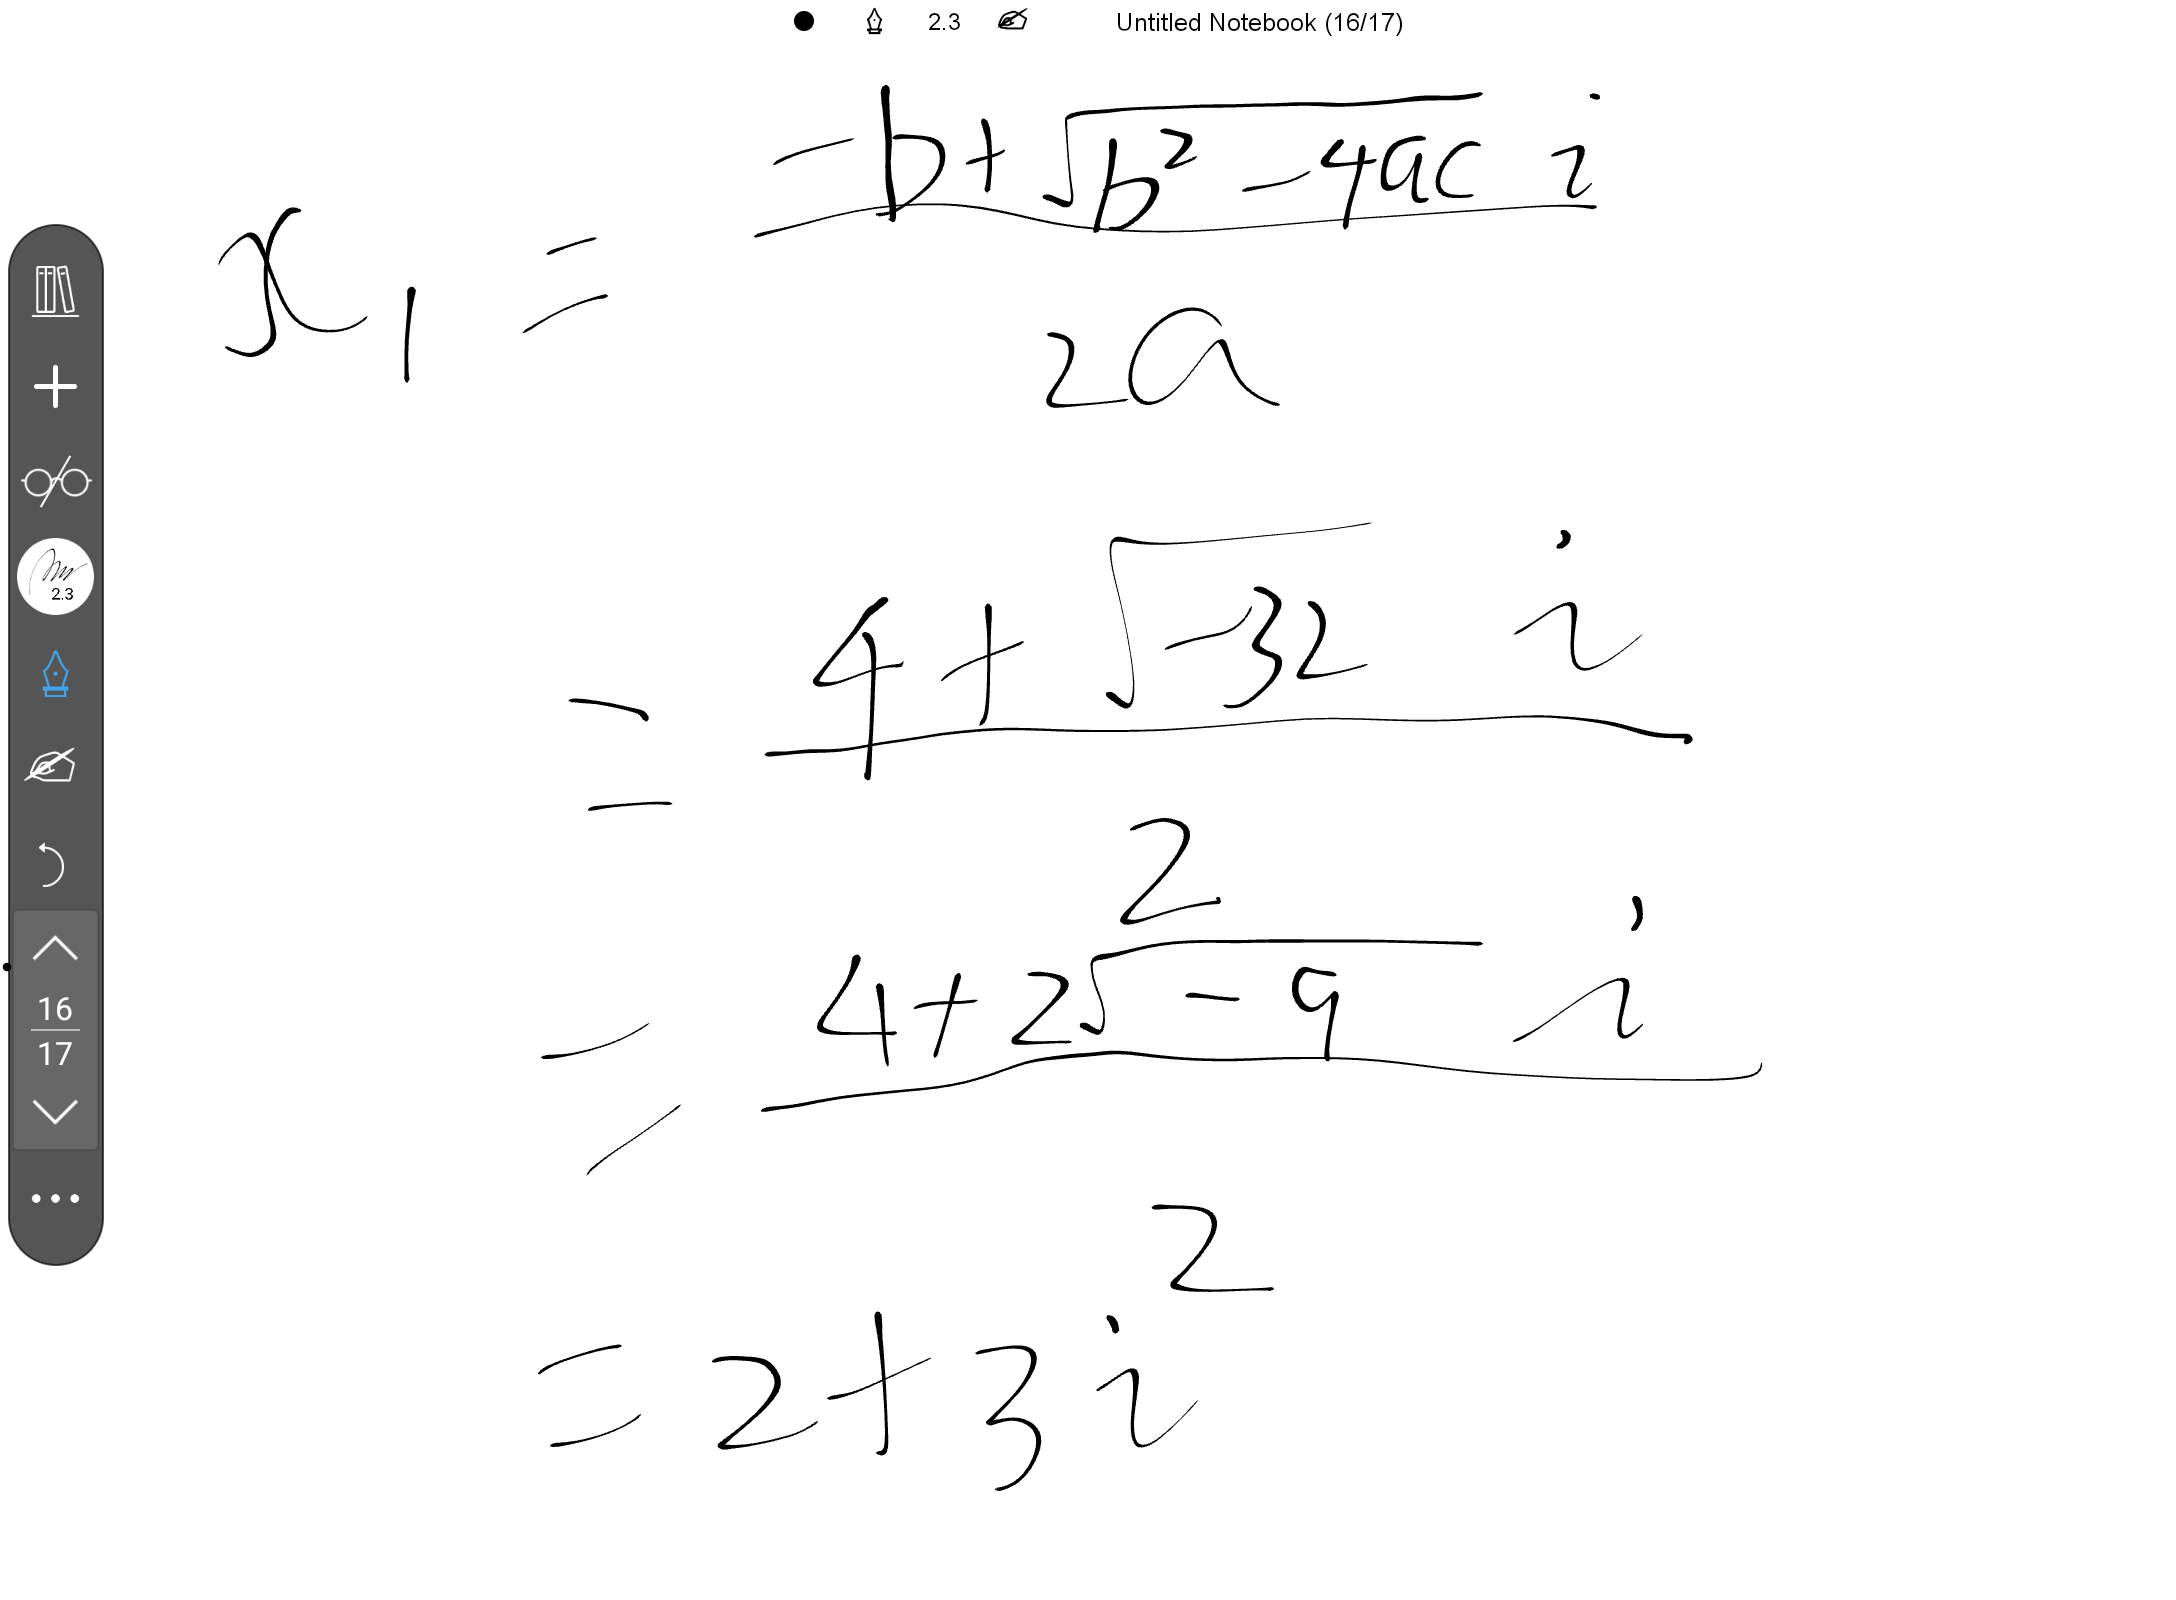 2.3 Untitled Notebook (16/17)
x₁ = (-b+√(b² -4ac) i) / 2a
= (4+√(-32) i) / 2
= (4+2√(-9) i) / 2
= 2+3i
2.3
16
17